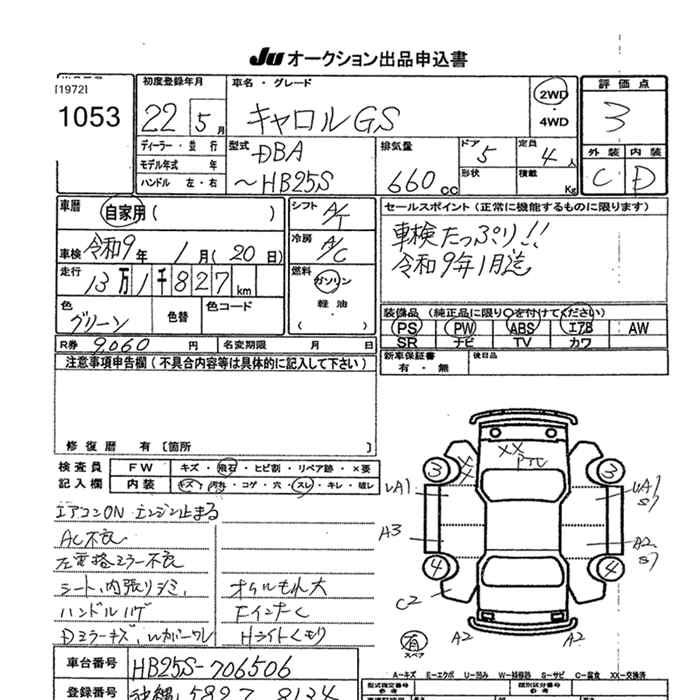 Ju オークション出品申込書
[1972]
1053
初度登録年月
22 5月
車名・グレード
キャロル GS
2WD
・
4WD
評価点
3
外装 内装
C D
ディーラー・並行
モデル年式 年
ハンドル 左・右
型式
DBA
～HB25S
排気量
660 cc
ドア
5
形状
定員
4人
積載
Kg
車歴 自家用 ( )
シフト A/T
車検 令和9年 1月 (20日)
冷房 A/C
走行 13万1千827km
燃料
ガソリン
軽油
( )
色
グリーン
色替
色コード
R券 9,060 円 名変期限 月 日
セールスポイント (正常に機能するものに限ります)
車検たっぷり!!
令和9年1月迄
装備品 (純正品に限り○を付けてください)
PS PW ABS エアB AW
SR ナビ TV カワ
新車保証書
有・無
後日品
注意事項申告欄 (不具合内容等は具体的に記入して下さい)
修復歴 有 [箇所 ]
検査員
記入欄
FW キズ・飛石・ヒビ割・リペア跡・×要
内装 キズ・汚れ・コゲ・穴・スレ・キレ・破レ
エアコンON エンジン止まる
AC不良
左電格ミラー不良
シート、内張りシミ、 オイルもれ大
ハンドルハゲ FインナーC
Dミラーキズ、 Hライトくもり
XX
3 XX 3
UA1 UA1
S7
A3 A2
S7
4 4
C2
有
スペア
A2 A2
A=キズ E=エクボ U=凹み W=補修跡 S=サビ C=腐食 XX=交換済
車台番号 HB25S-706506
型式指定番号
参考
類別区分番号
参考
登録番号 沖縄